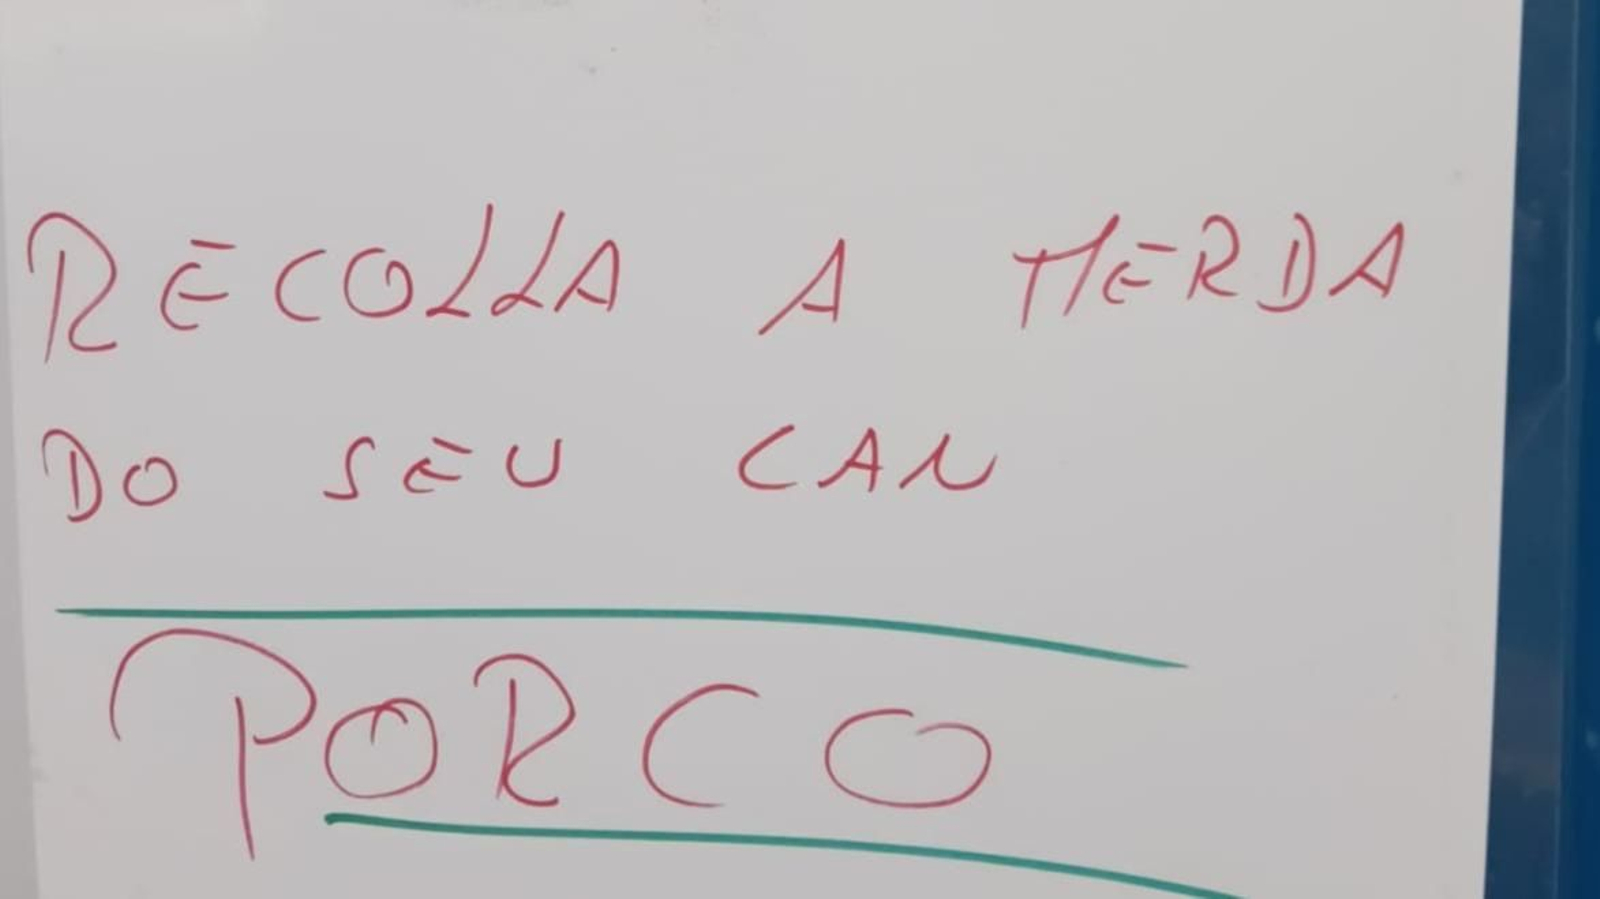 RECOLLA A MERDA
DO SEU CAN
PORCO